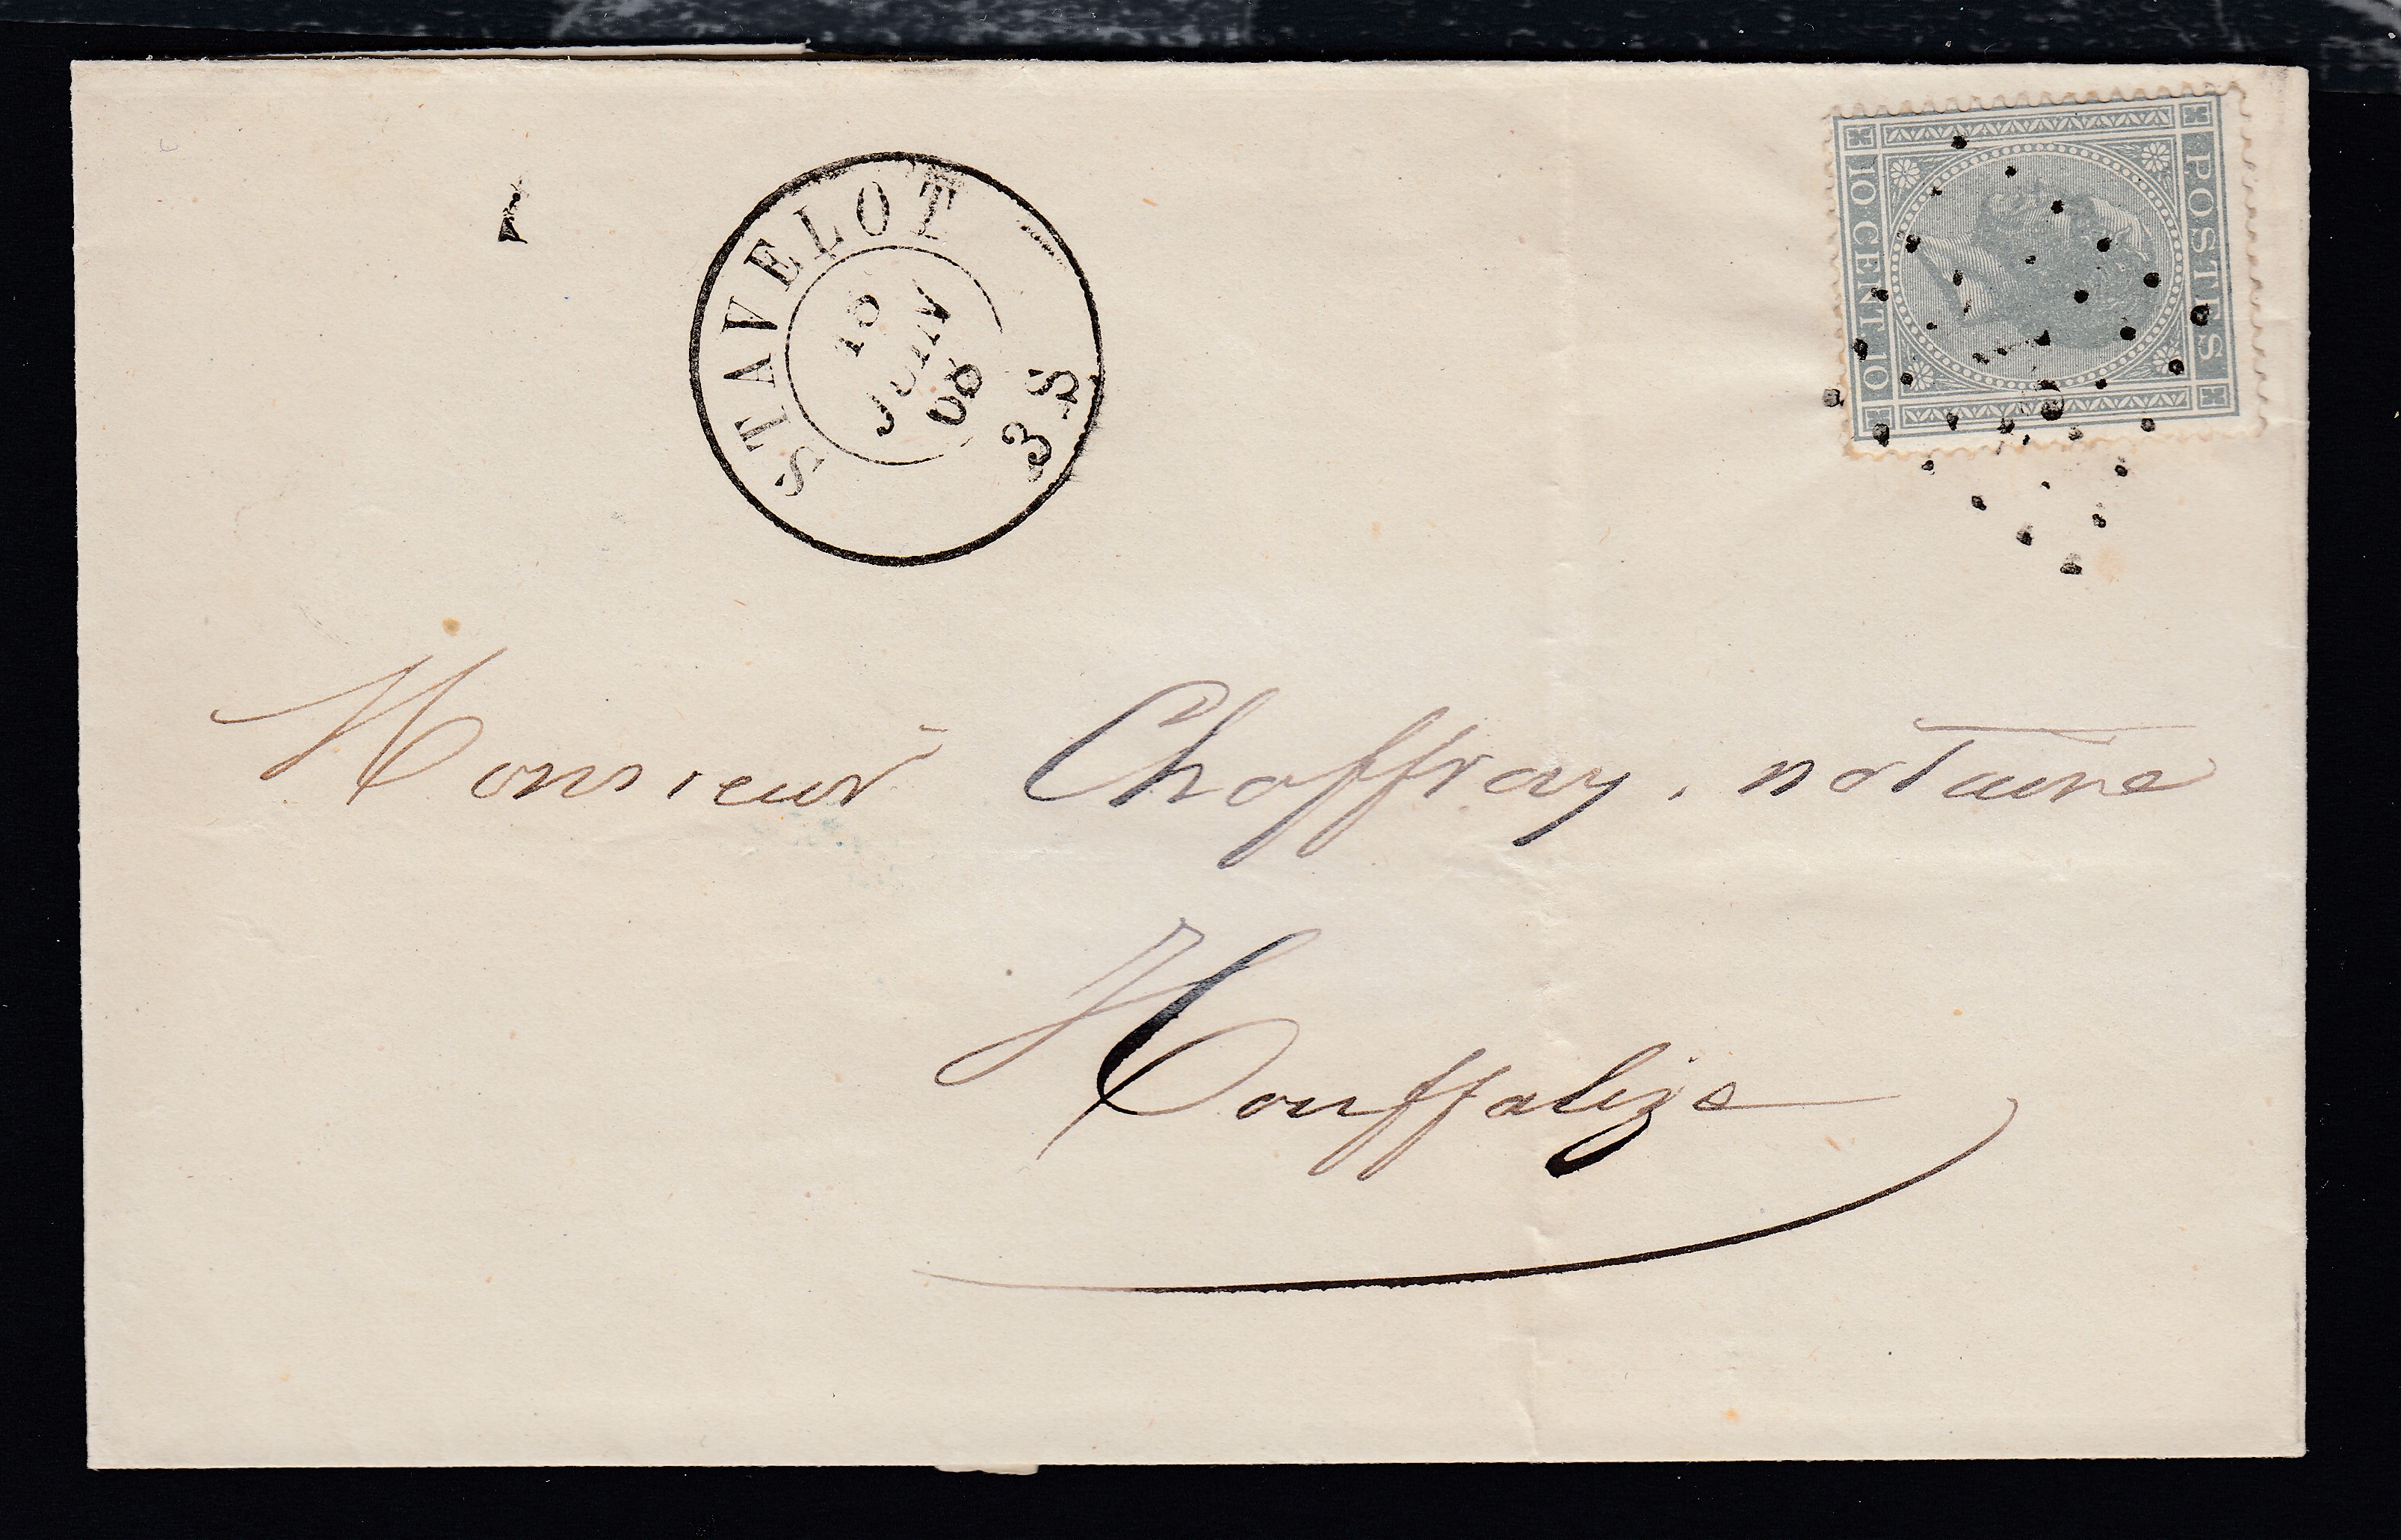 STAVELOT
JUIN
3 S
POSTES
10 CENT. 10
Monsieur Chaffray, notaire
Houffalize